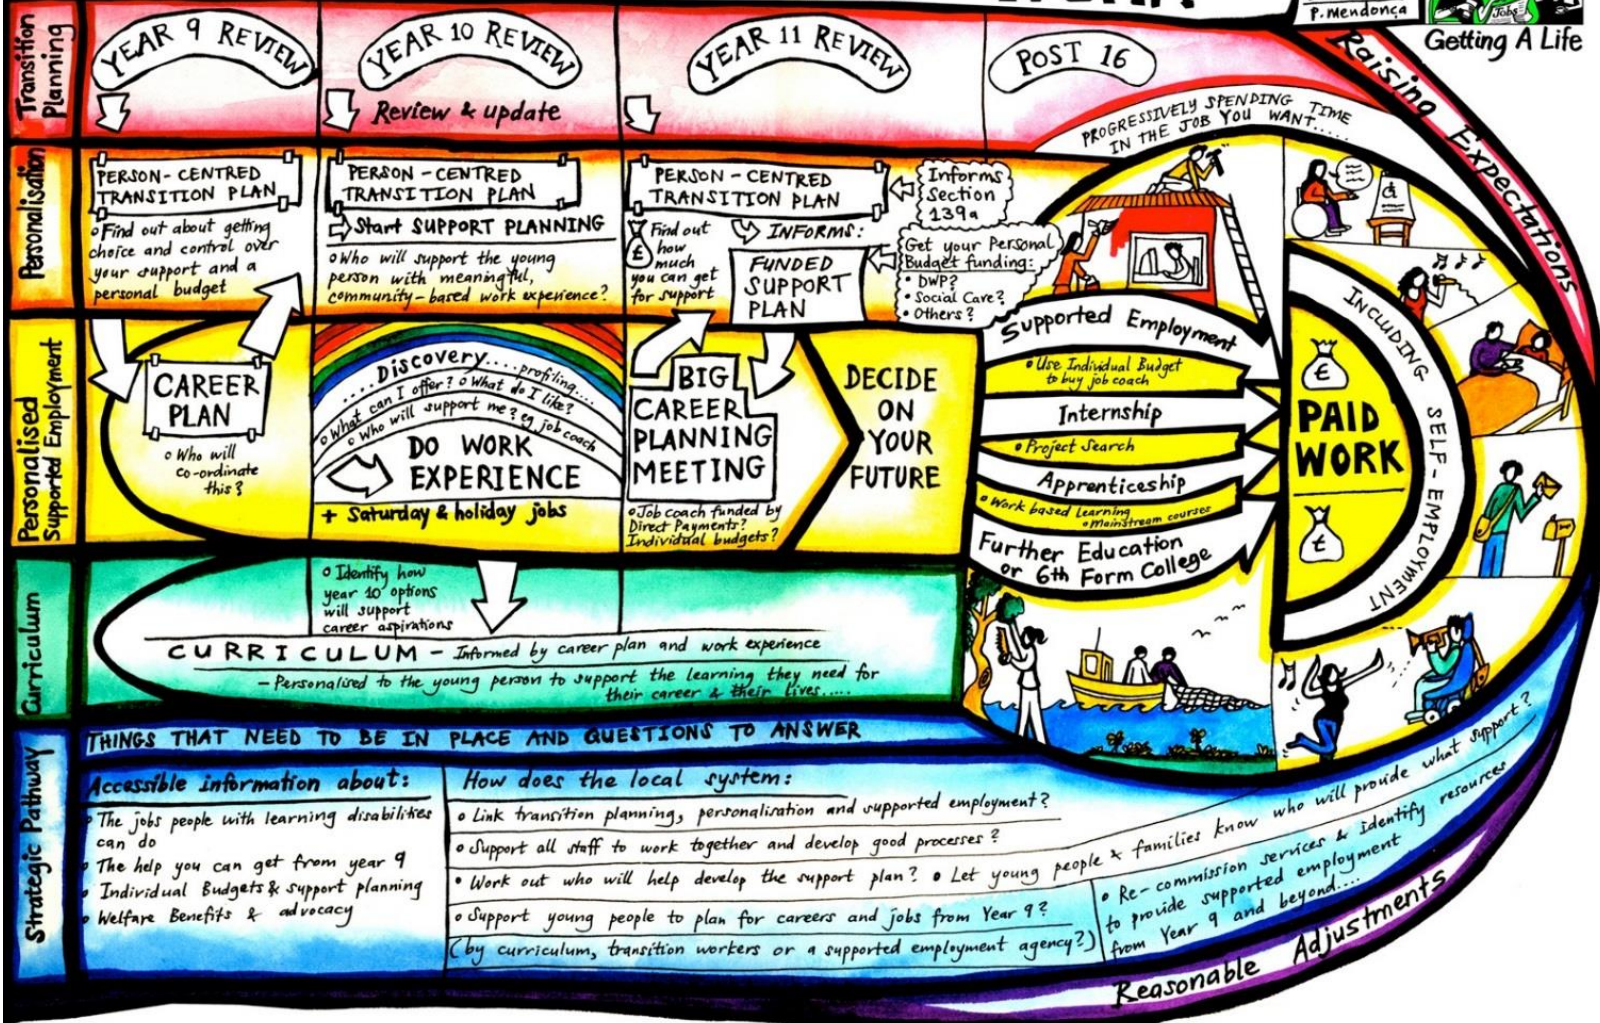 P. Mendonça
Jobs
Getting A Life
Transition
Planning
YEAR 9 REVIEW
YEAR 10 REVIEW
Review & update
YEAR 11 REVIEW
POST 16
Raising Expectations
PROGRESSIVELY SPENDING TIME
IN THE JOB YOU WANT.....
Personalisation
PERSON-CENTRED
TRANSITION PLAN
Find out about getting
choice and control over
your support and a
personal budget
PERSON-CENTRED
TRANSITION PLAN
Start SUPPORT PLANNING
Who will support the young
person with meaningful,
community-based work experience?
PERSON-CENTRED
TRANSITION PLAN
£
Find out
how
much
you can get
for support
INFORMS:
FUNDED
SUPPORT
PLAN
Informs
Section
139a
Get your Personal
Budget funding:
• DWP?
• Social Care?
• Others?
Personalised
Supported Employment
CAREER
PLAN
Who will
co-ordinate
this?
....Discovery....profiling....
What can I offer? o What do I like?
Who will support me? eg job coach
DO WORK
EXPERIENCE
+ Saturday & holiday jobs
BIG
CAREER
PLANNING
MEETING
Job coach funded by
Direct Payments?
Individual budgets?
DECIDE
ON
YOUR
FUTURE
Supported Employment
Use Individual Budget
to buy job coach
Internship
Project Search
Apprenticeship
Work based learning
Mainstream courses
Further Education
or 6th Form College
£
PAID
WORK
£
INCLUDING SELF-EMPLOYMENT
Curriculum
Identify how
year 10 options
will support
career aspirations
CURRICULUM - Informed by career plan and work experience
- Personalised to the young person to support the learning they need for
their career & their lives.....
Strategic Pathway
THINGS THAT NEED TO BE IN PLACE AND QUESTIONS TO ANSWER
Accessible information about:
The jobs people with learning disabilities
can do
The help you can get from year 9
Individual Budgets & support planning
Welfare Benefits & advocacy
How does the local system:
Link transition planning, personalisation and supported employment?
Support all staff to work together and develop good processes?
Work out who will help develop the support plan? • Let young people & families know who will provide what support?
Support young people to plan for careers and jobs from Year 9?
(by curriculum, transition workers or a supported employment agency?)
Re-commission services & identify resources
to provide supported employment
from Year 9 and beyond....
Reasonable Adjustments